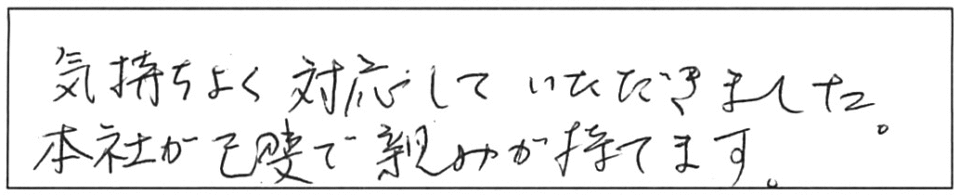 気持ちよく対応していただきました。
本社が己斐で親みが持てます。